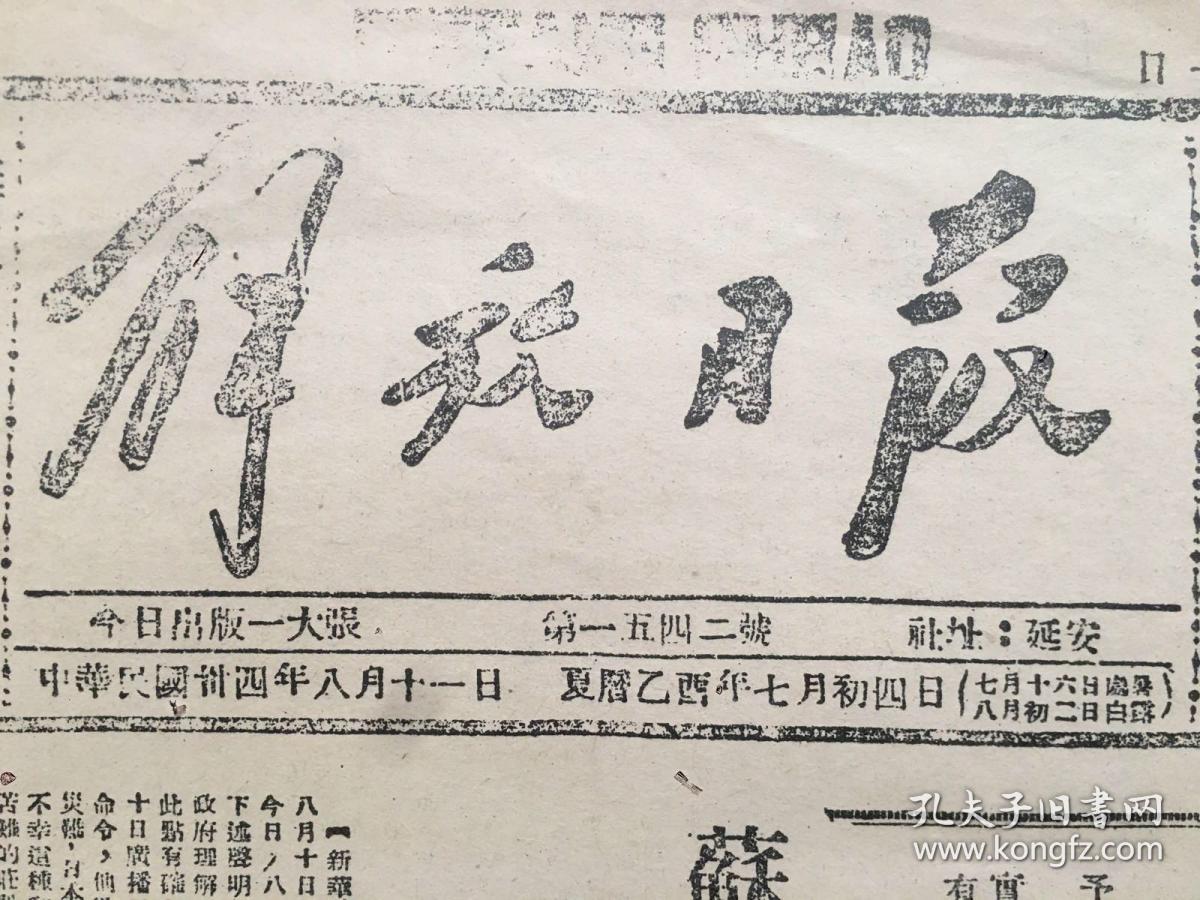 解放日报
今日出版一大張
第一五四二號
社址：延安
中華民國卅四年八月十一日
夏曆乙酉年七月初四日
（七月十六日處暑
八月初二日白露）
【新華
八月十日
今日，八
下述聲明
政府理解
此點有確
十日廣播
命令，他
災難，日本
不幸這種
苦難的莊
蘇
予
實
有
孔夫子旧书网
www.kongfz.com